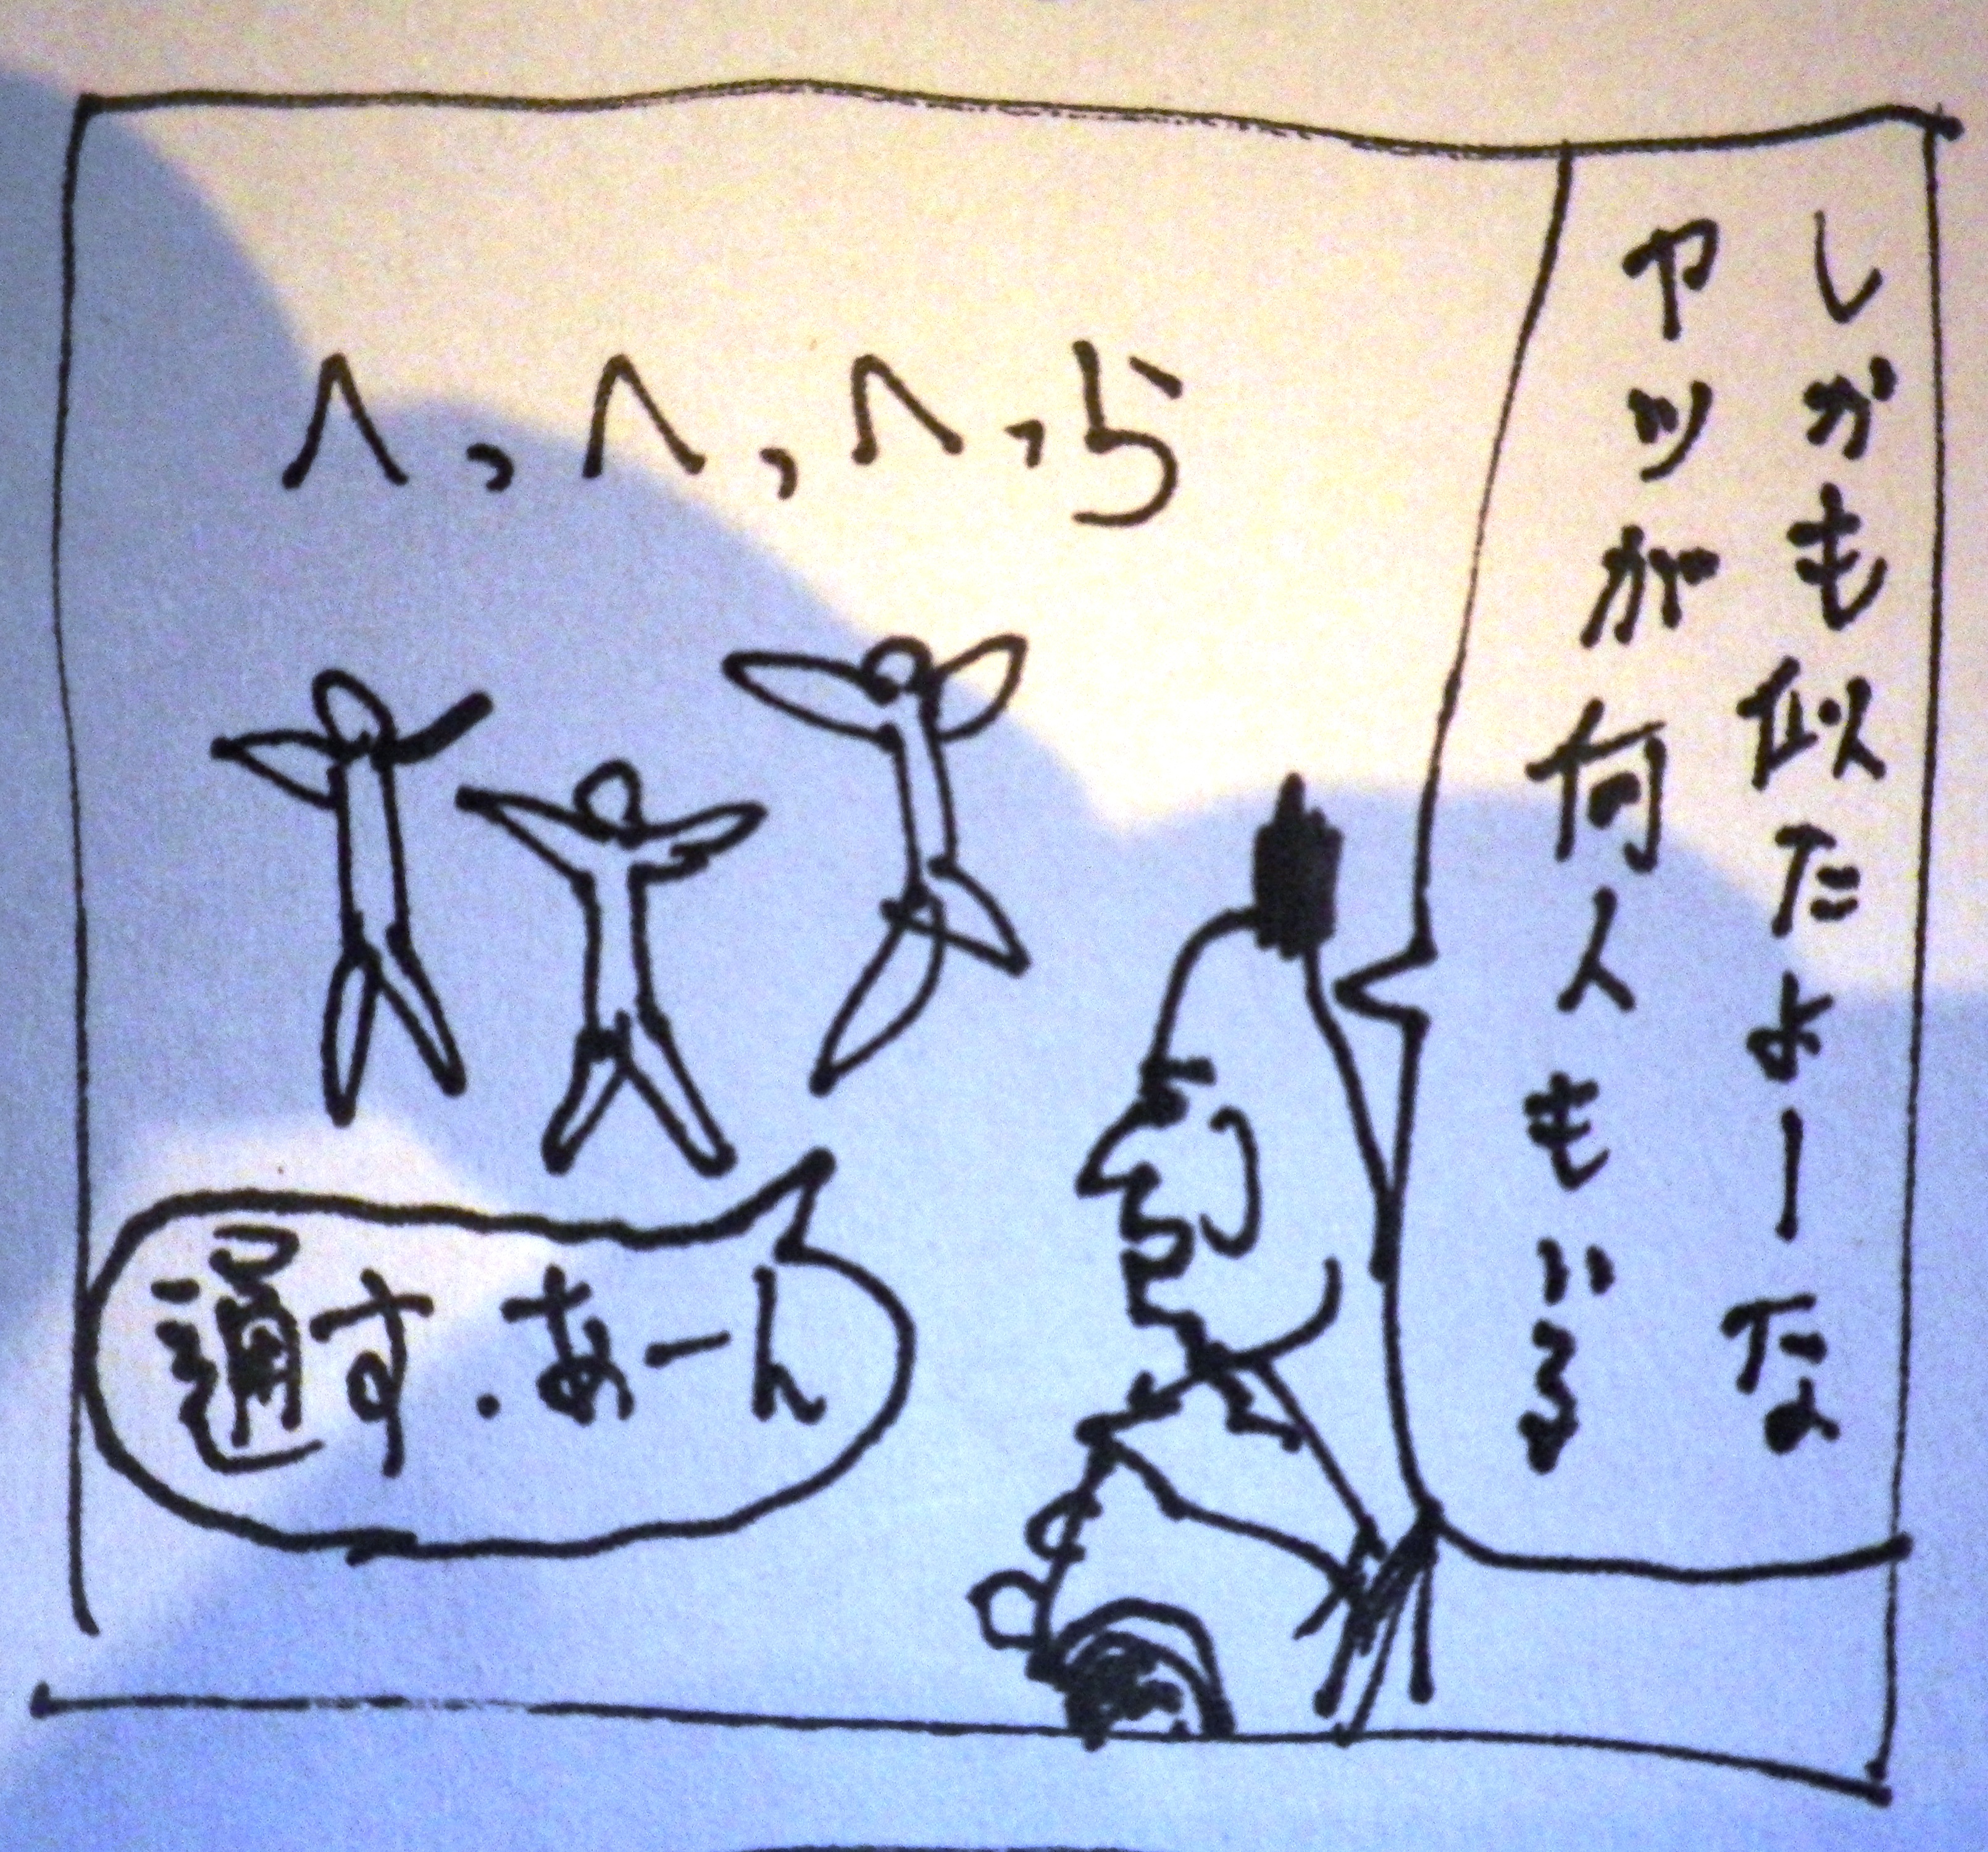 しかも似たよーな
ヤツが何人もいる
へっへっへっら
通す.あーん